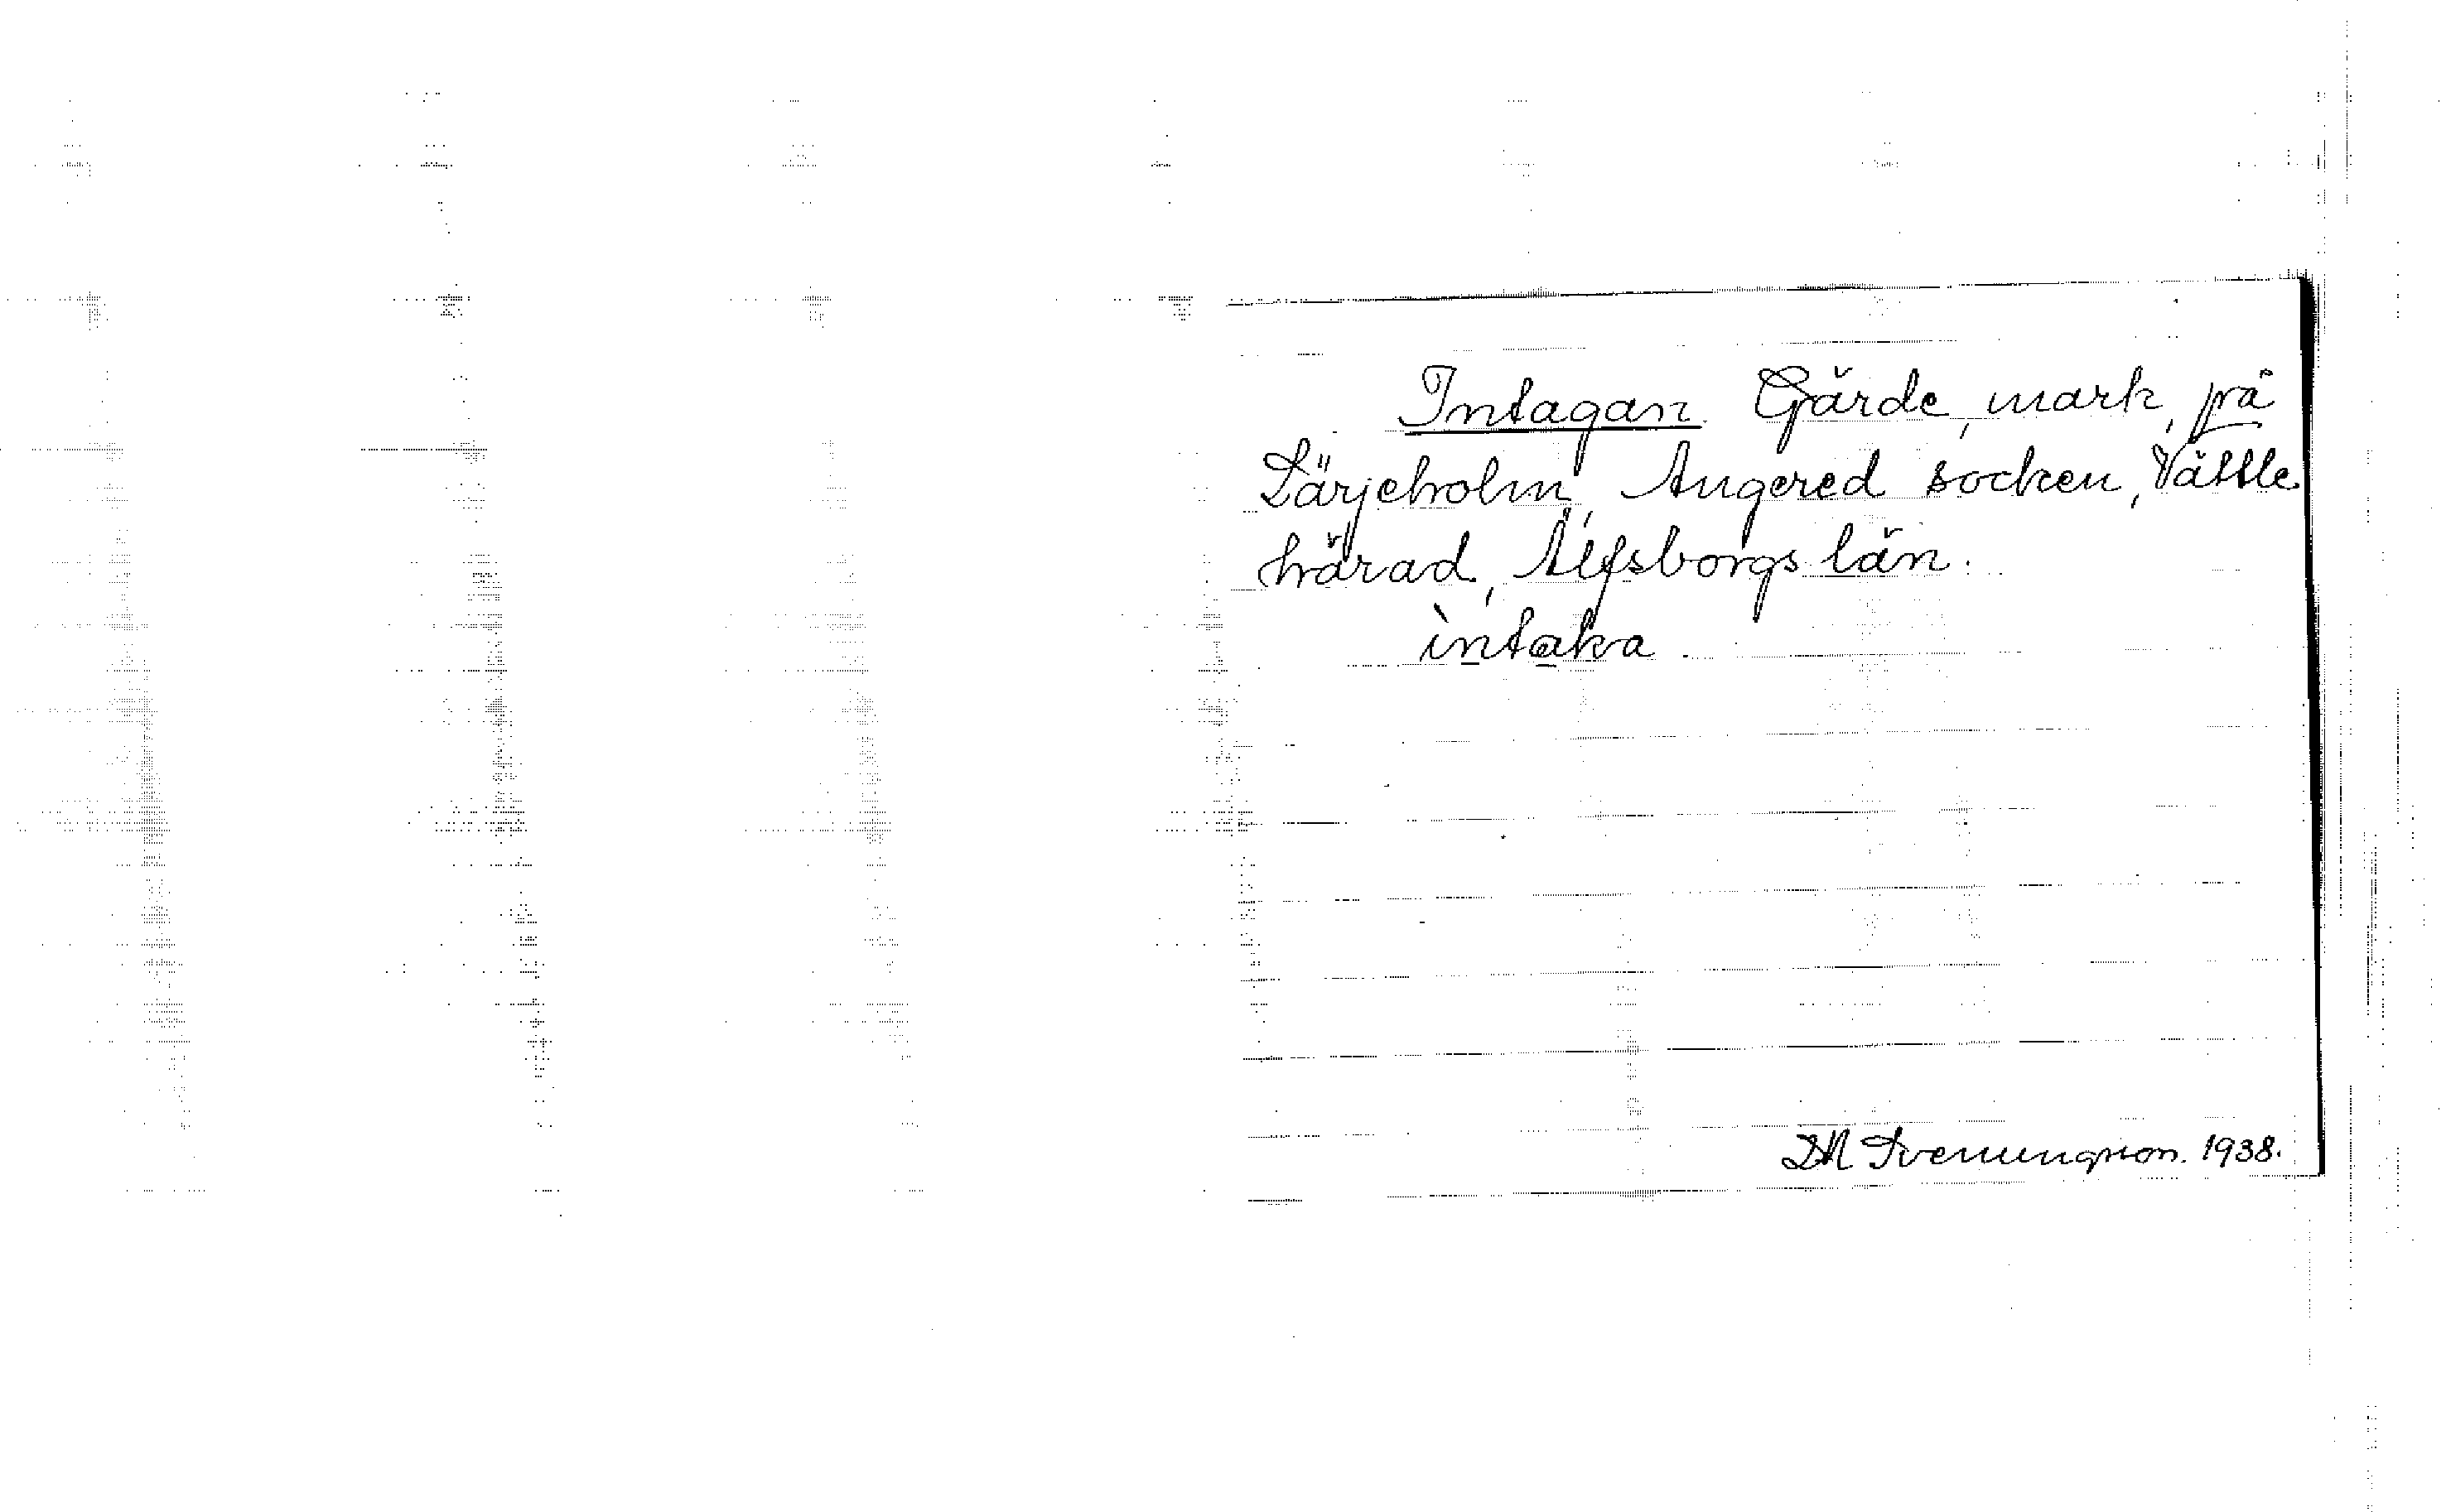 Intagan. Gärde, mark, på
Lärjeholm, Angered socken, Vättle
härad, Älfsborgs län.
intaka
DM Svenungsson. 1938.